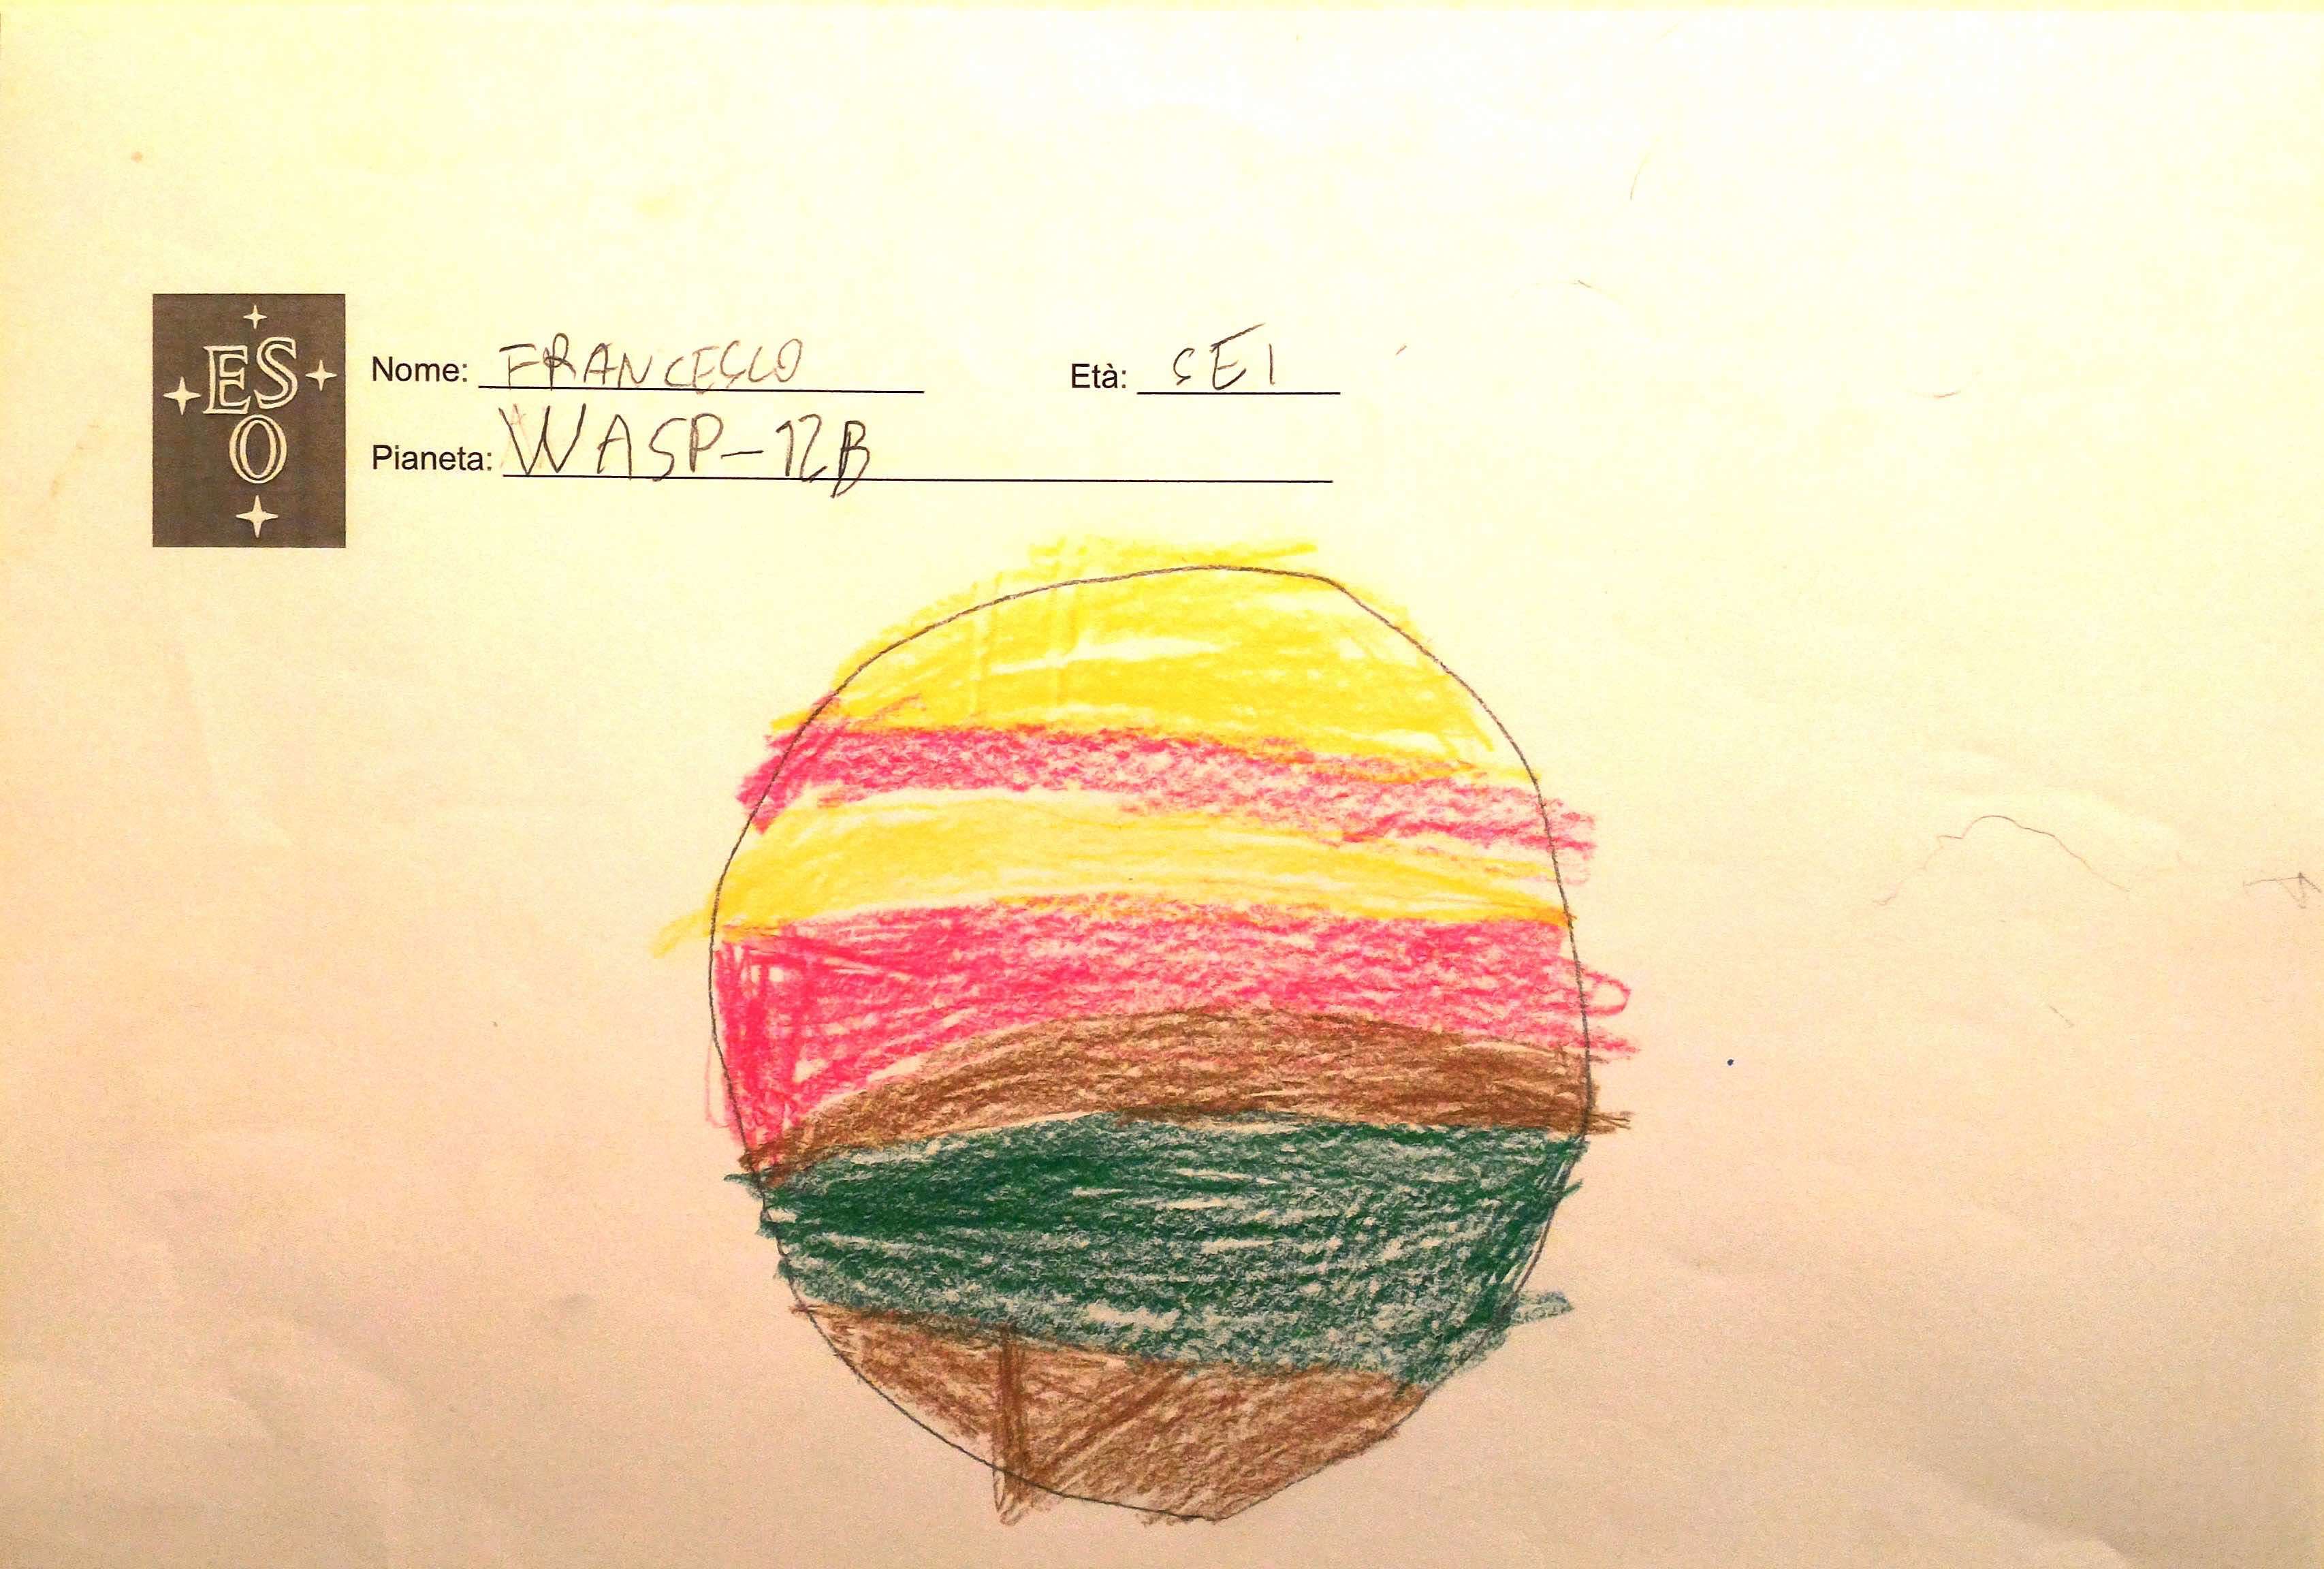 ESO
Nome: FRANCESCO Età: SEI
Pianeta: WASP-12B